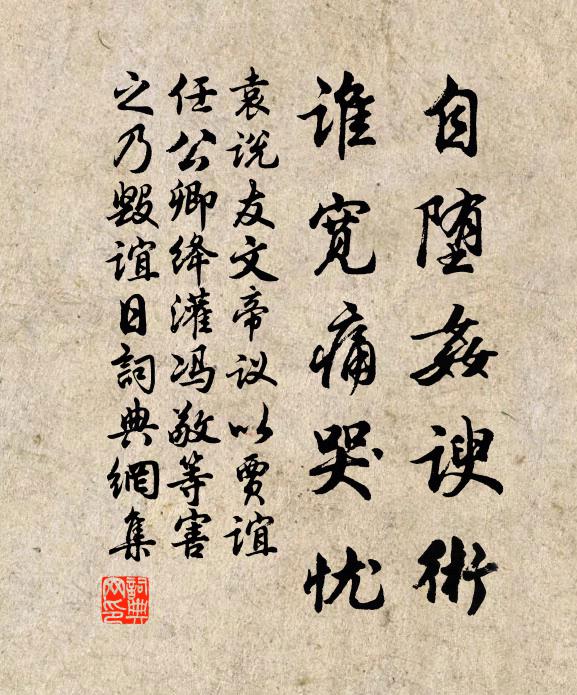 自堕姦谀術
谁宽痛哭忧
袁说友文帝议以贾谊
任公卿绛灌冯敬等害
之乃毁谊日詞典網集
詞典网印